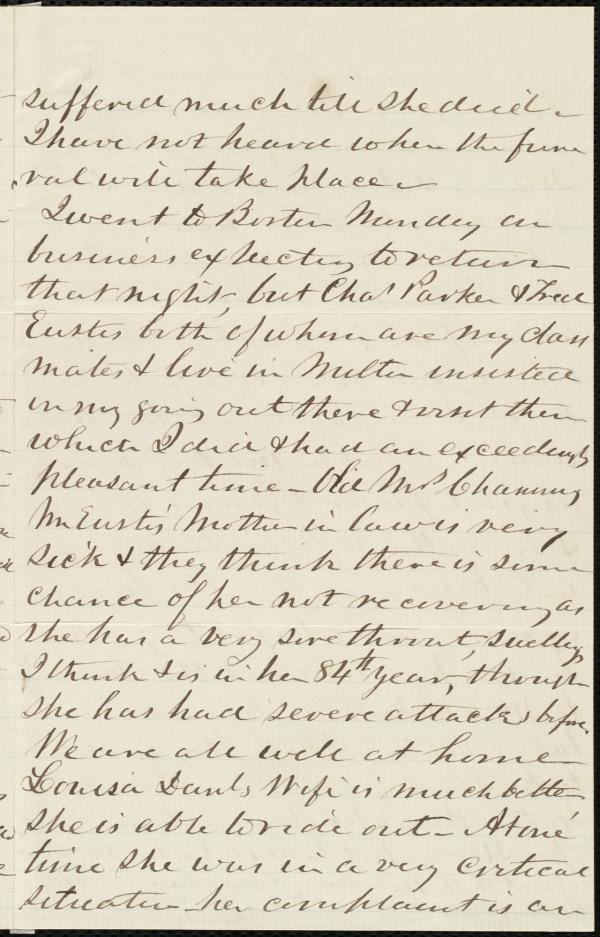 suffered much till she died –
I have not heard when the fune
ral will take place –
I went to Boston Monday on
business expecting to return
that night, but Chas Parker & Fred
Eustis both of whom are my class
mates & live in Milton insisted
on my going out there & visit them
which I did & had an exceedingly
pleasant time – Old Mrs Channing
Mr Eustis' Mother in law is very
sick & they think there is some
chance of her not recovering as
she has a very sore throat, swelling
I think & is in her 84th year, though
she has had severe attacks before.
We are all well at home
Louisa Danls Wife is much better
she is able to ride out – At one
time she was in a very critical
situation her complaint is an